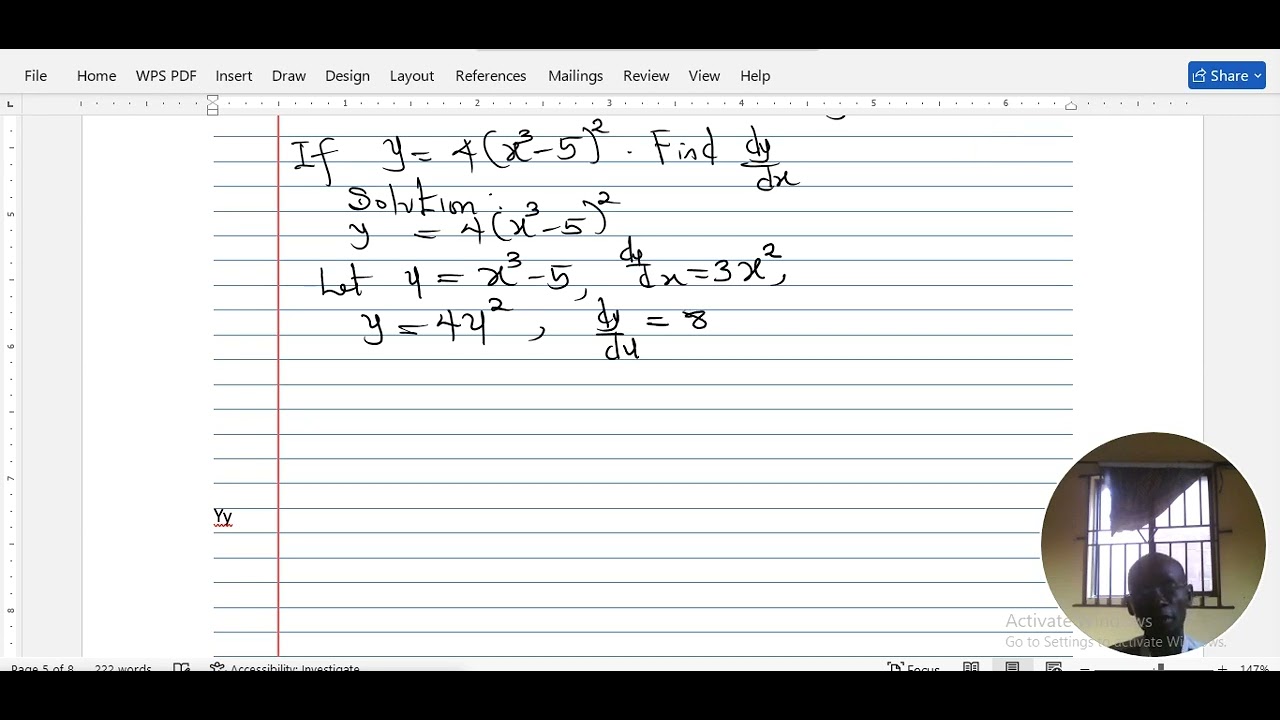 File Home WPS PDF Insert Draw Design Layout References Mailings Review View Help Share
1 2 3 4 5 6
If y = 4(x³-5)². Find dy/dx
Solution:
y = 4(x³-5)²
Let u = x³-5, du/dx = 3x²,
y = 4u², dy/du = 8
Yy
5
6
7
8
Activate Windows
Go to Settings to activate Windows.
Page 5 of 8 222 words Accessibility: Investigate Focus 147%